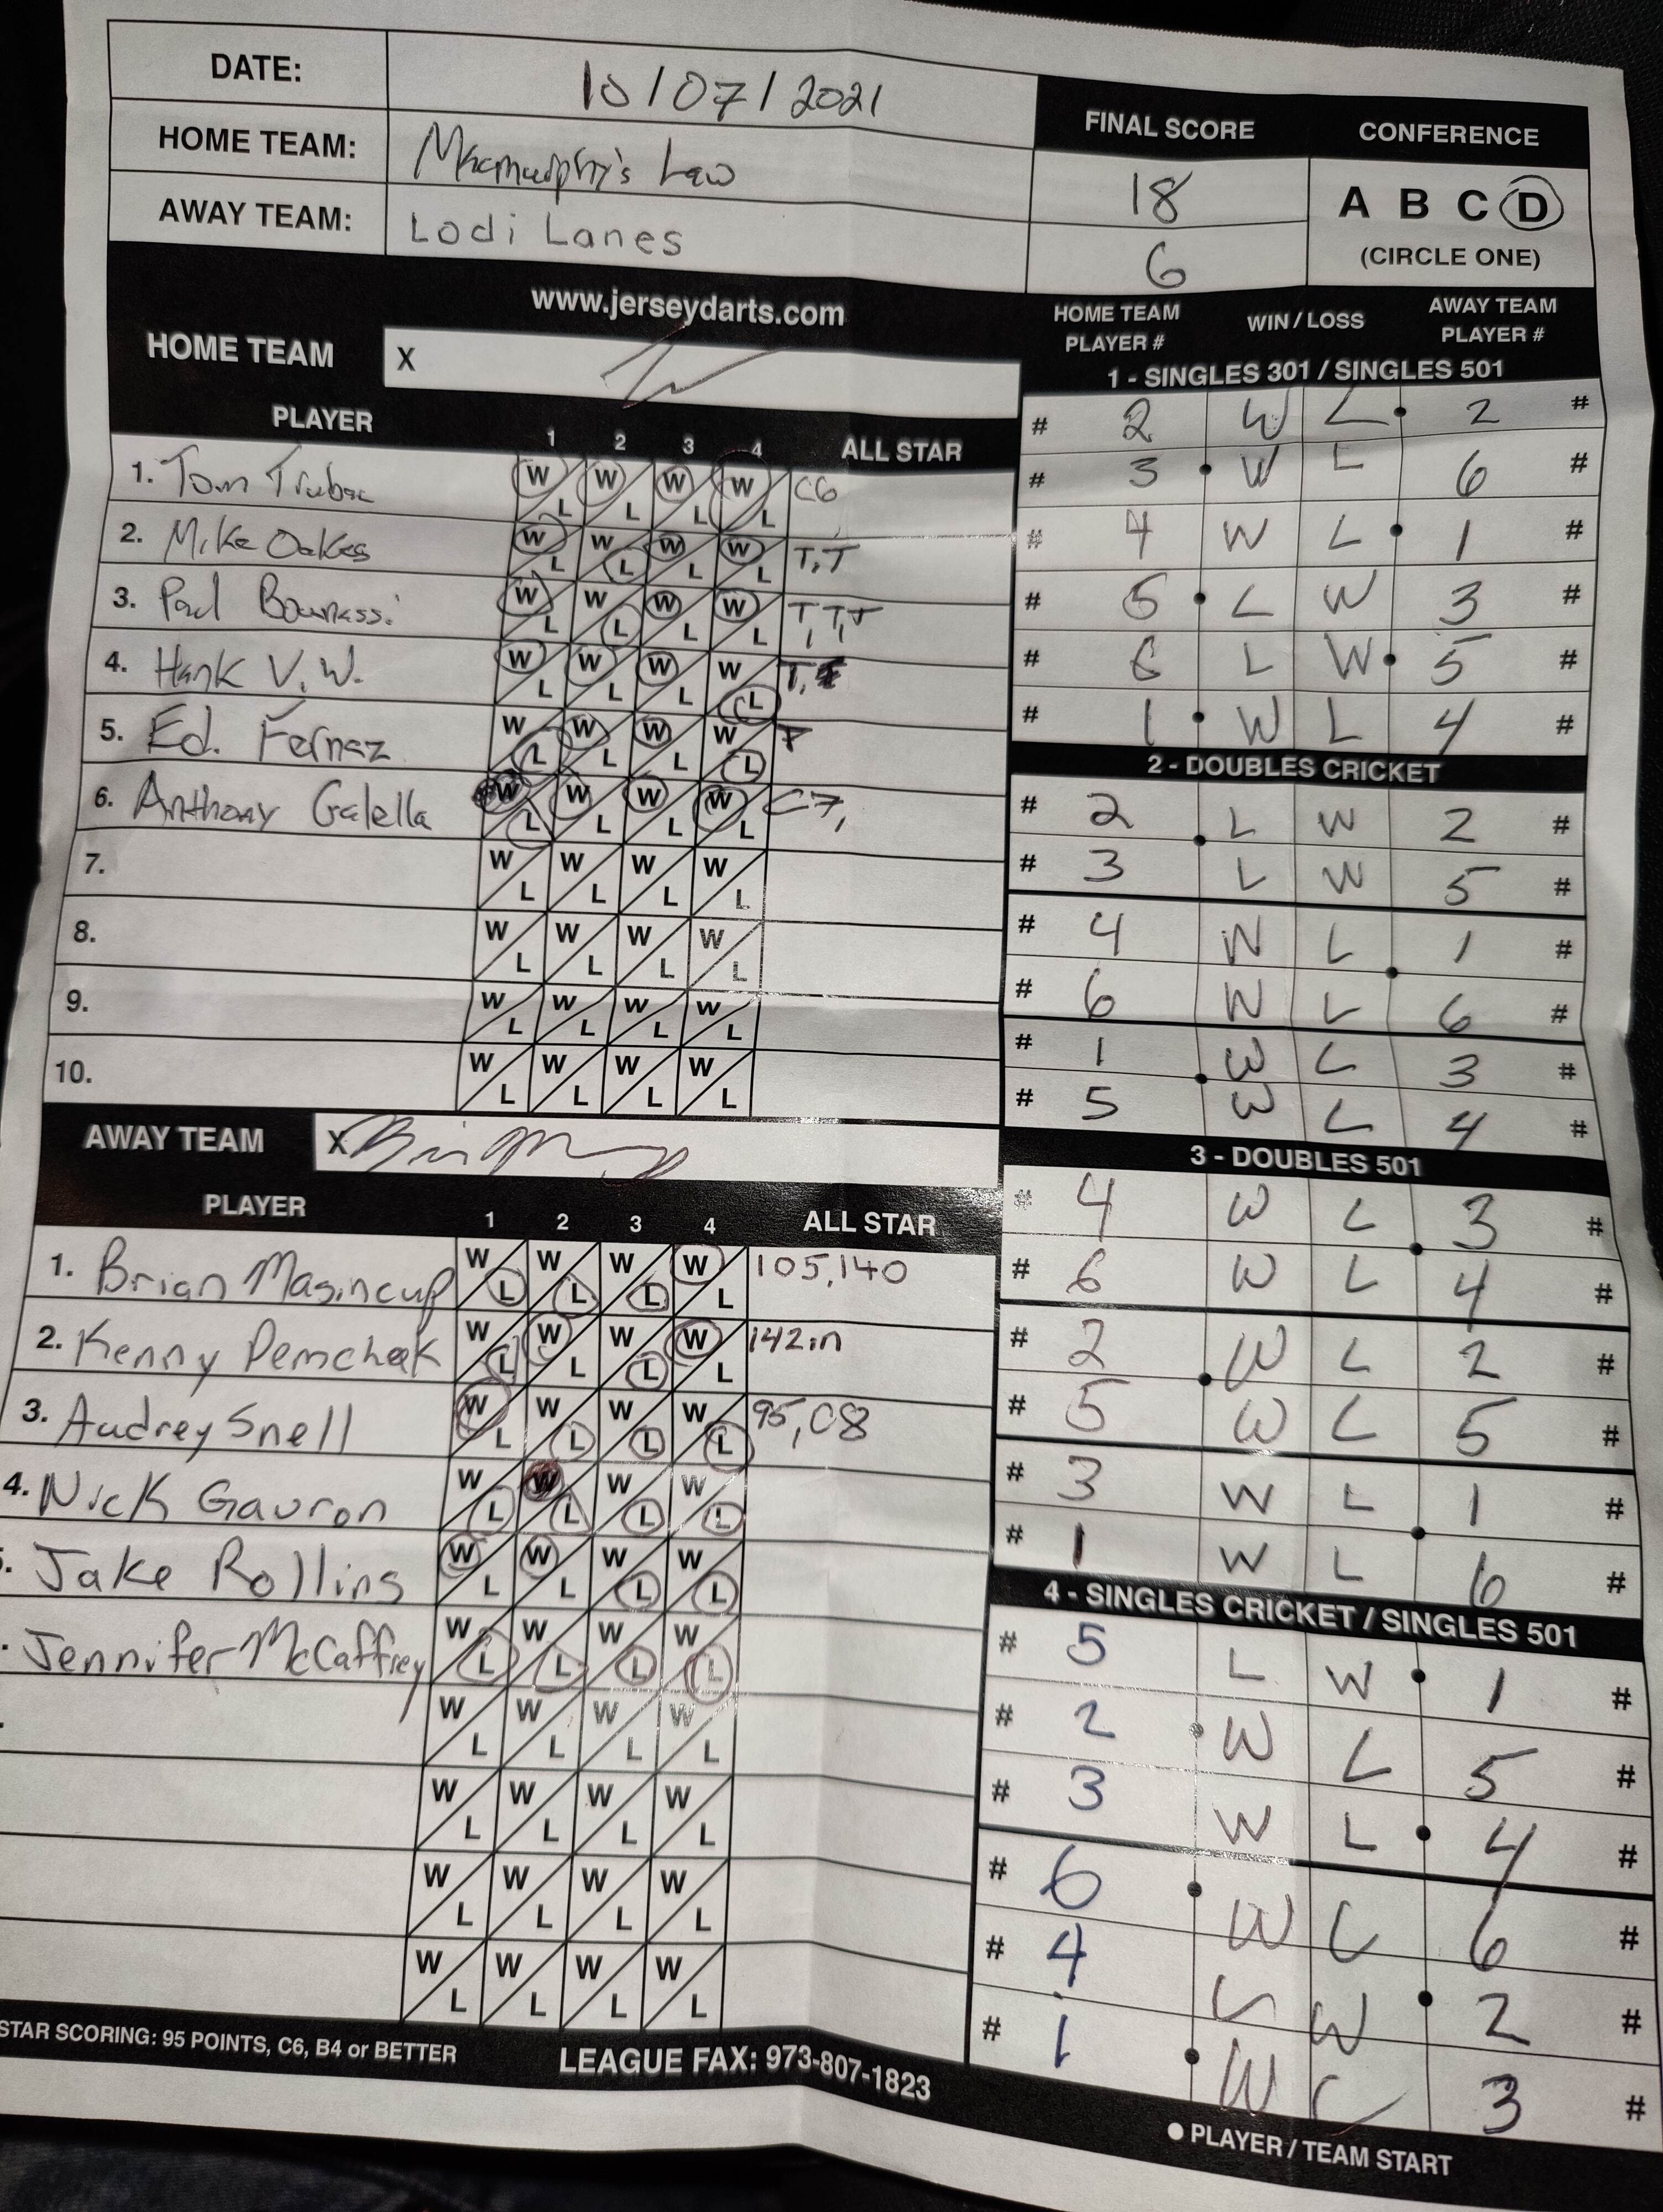 DATE: 10/07/2021
HOME TEAM: Macmurphy's Law
AWAY TEAM: Lodi Lanes
FINAL SCORE
18
6
CONFERENCE
A B C D
(CIRCLE ONE)
www.jerseydarts.com
HOME TEAM X
PLAYER 1 2 3 4 ALL STAR
1. Tom W L W L W L W L C6
2. Mike Oakes W L W L W L W L T,T
3. Paul W L W L W L W L T,T,T
4. Hank V.W. W L W L W L W L T,
5. Ed. Fernaz W L W L W L W L T
6. Anthony Galella W L W L W L W L C7,
7. W L W L W L W L
8. W L W L W L W L
9. W L W L W L W L
10. W L W L W L W L
AWAY TEAM X
PLAYER 1 2 3 4 ALL STAR
1. Brian Masincup W L W L W L W L 105,140
2. Kenny Pemchak W L W L W L W L 142in
3. Audrey Snell W L W L W L W L 95,C8
4. Nick Gavron W L W L W L W L
Jake Rollins W L W L W L W L
Jennifer McCaffrey W L W L W L W L
W L W L W L W L
W L W L W L W L
W L W L W L W L
W L W L W L W L
STAR SCORING: 95 POINTS, C6, B4 or BETTER
LEAGUE FAX: 973-807-1823
HOME TEAM PLAYER # WIN / LOSS AWAY TEAM PLAYER #
1 - SINGLES 301 / SINGLES 501
# 2 W L 2 #
# 3 W L 6 #
# 4 W L 1 #
# 5 L W 3 #
# 6 L W 5 #
# 1 W L 4 #
2 - DOUBLES CRICKET
# 2 L W 2 #
# 3 L W 5 #
# 4 W L 1 #
# 6 W L 6 #
# 1 W L 3 #
# 5 W L 4 #
3 - DOUBLES 501
# 4 W L 3 #
# 6 W L 4 #
# 2 W L 2 #
# 5 W L 5 #
# 3 W L 1 #
# 1 W L 6 #
4 - SINGLES CRICKET / SINGLES 501
# 5 L W 1 #
# 2 W L 5 #
# 3 W L 4 #
# 6 W L 6 #
# 4 L W 2 #
# 1 W L 3 #
● PLAYER / TEAM START